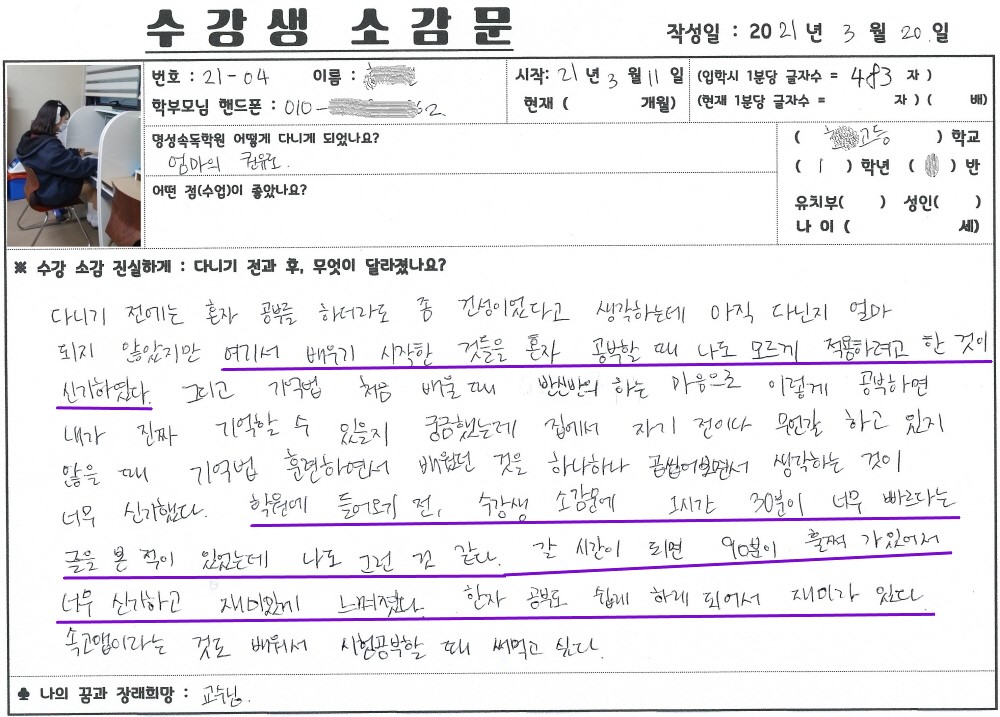 수강생 소감문
작성일 : 2021년 3월 20일
번호 : 21-04 이름 :
시작: 21년 3월 11일
(입학시 1분당 글자수 = 483 자)
학부모님 핸드폰 : 010- 62
현재 ( 개월)
(현재 1분당 글자수 = 자) ( 배)
명성속독학원 어떻게 다니게 되었나요?
엄마의 권유로.
( 고등 ) 학교
( 1 ) 학년 ( ) 반
어떤 점(수업)이 좋았나요?
유치부( ) 성인( )
나 이 ( 세)
※ 수강 소감 진실하게 : 다니기 전과 후, 무엇이 달라졌나요?
다니기 전에는 혼자 공부를 하더라도 좀 건성이었다고 생각하는데 아직 다닌지 얼마
되지 않았지만 여기서 배우기 시작한 것들을 혼자 공부할 때 나도 모르게 적용하려고 한 것이
신기하였다. 그리고 기억법 처음 배울 때 반신반의 하는 마음으로 이렇게 공부하면
내가 진짜 기억할 수 있을지 궁금했는데 집에서 자기 전이나 무언갈 하고 있지
않을 때 기억법 훈련하면서 배웠던 것을 하나하나 곱씹어보면서 생각하는 것이
너무 신기했다. 학원에 들어오기 전, 수강생 소감문에 1시간 30분이 너무 빠르다는
글을 본 적이 있었는데 나도 그런 것 같다. 갈 시간이 되면 90분이 훌쩍 가있어서
너무 신기하고 재미있게 느껴졌다. 한자 공부도 쉽게 하게 되어서 재미가 있다.
속고맵이라는 것도 배워서 시험공부할 때 써먹고 싶다.
♣ 나의 꿈과 장래희망 : 교수님.